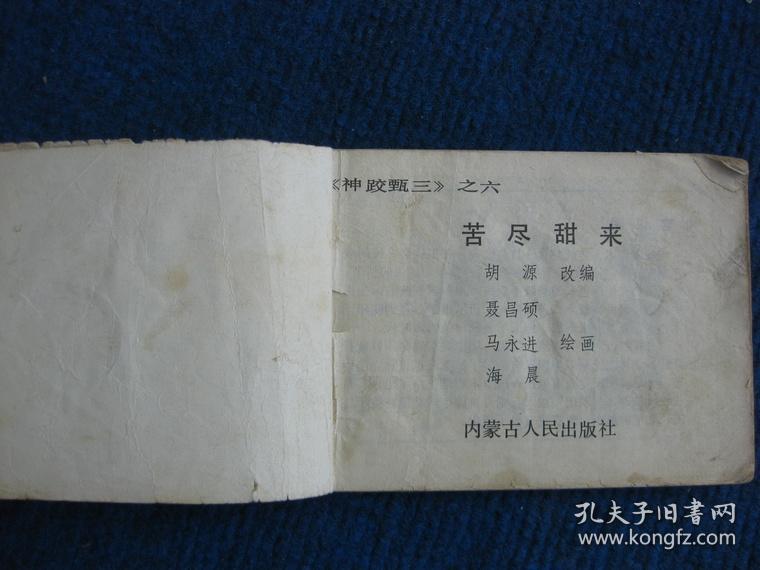 《神跤甄三》之六
苦尽甜来
胡 源 改编
聂昌硕
马永进 绘画
海 晨
内蒙古人民出版社
孔夫子旧书网
www.kongfz.com